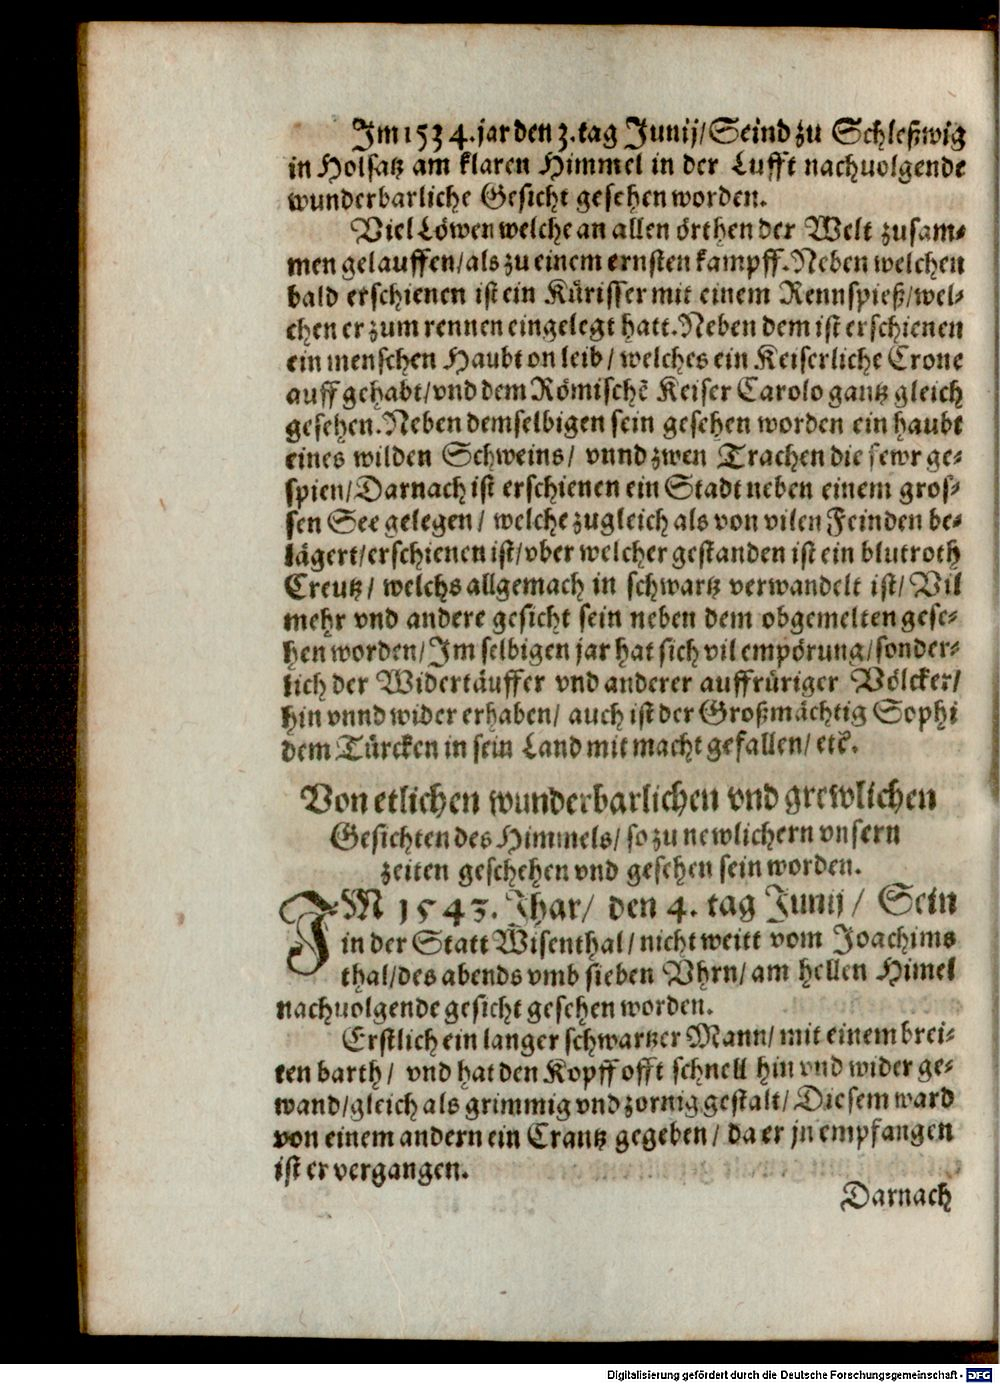 Im 1534. jar den 3. tag Junij/ Seind zu Schleßwig
in Holsatz am klaren Himmel in der Lufft nachuolgende
wunderbarliche Gesicht gesehen worden.
Viel Löwen welche an allen örthen der Welt zusam-
men gelauffen/ als zu einem ernsten kampff. Neben welchen
bald erschienen ist ein Kürisser mit einem Rennspieß/ wel-
chen er zum rennen eingelegt hatt. Neben dem ist erschienen
ein menschen Haubt on leib/ welches ein Keiserliche Crone
auff gehabt/ vnd dem Römischē Keiser Carolo gantz gleich
gesehen. Neben demselbigen sein gesehen worden ein haubt
eines wilden Schweins/ vnnd zwen Trachen die fewr ge-
spien/ Darnach ist erschienen ein Stadt neben einem gros-
sen See gelegen/ welche zugleich als von vilen Feinden be-
lägert/ erschienen ist/ vber welcher gestanden ist ein blutroth
Creutz/ welchs allgemach in schwartz verwandelt ist/ Vil
mehr vnd andere gesicht sein neben dem obgemelten gese-
hen worden/ Im selbigen jar hat sich vil empörung/ sonder-
lich der Widertäuffer vnd anderer auffrüriger Völcker/
hin vnnd wider erhaben/ auch ist der Großmächtig Sophi
dem Türcken in sein Land mit macht gefallen/ etc̄.
Von etlichen wunderbarlichen vnd grewlichen
Gesichten des Himmels/ so zu newlichern vnsern
zeiten geschehen vnd gesehen sein worden.
IM 1543. Jhar/ den 4. tag Junij/ Sein
in der Statt Wisenthal/ nicht weitt vom Joachims
thal/ des abends vmb sieben Vhrn/ am hellen Himel
nachuolgende gesicht gesehen worden.
Erstlich ein langer schwartzer Mann/ mit einem brei-
ten barth/ vnd hat den Kopff offt schnell hin vnd wider ge-
wand/ gleich als grimmig vnd zornig gestalt/ Diesem ward
von einem andern ein Crantz gegeben/ da er jn empfangen
ist er vergangen.
Darnach
Digitalisierung gefördert durch die Deutsche Forschungsgemeinschaft - DFG